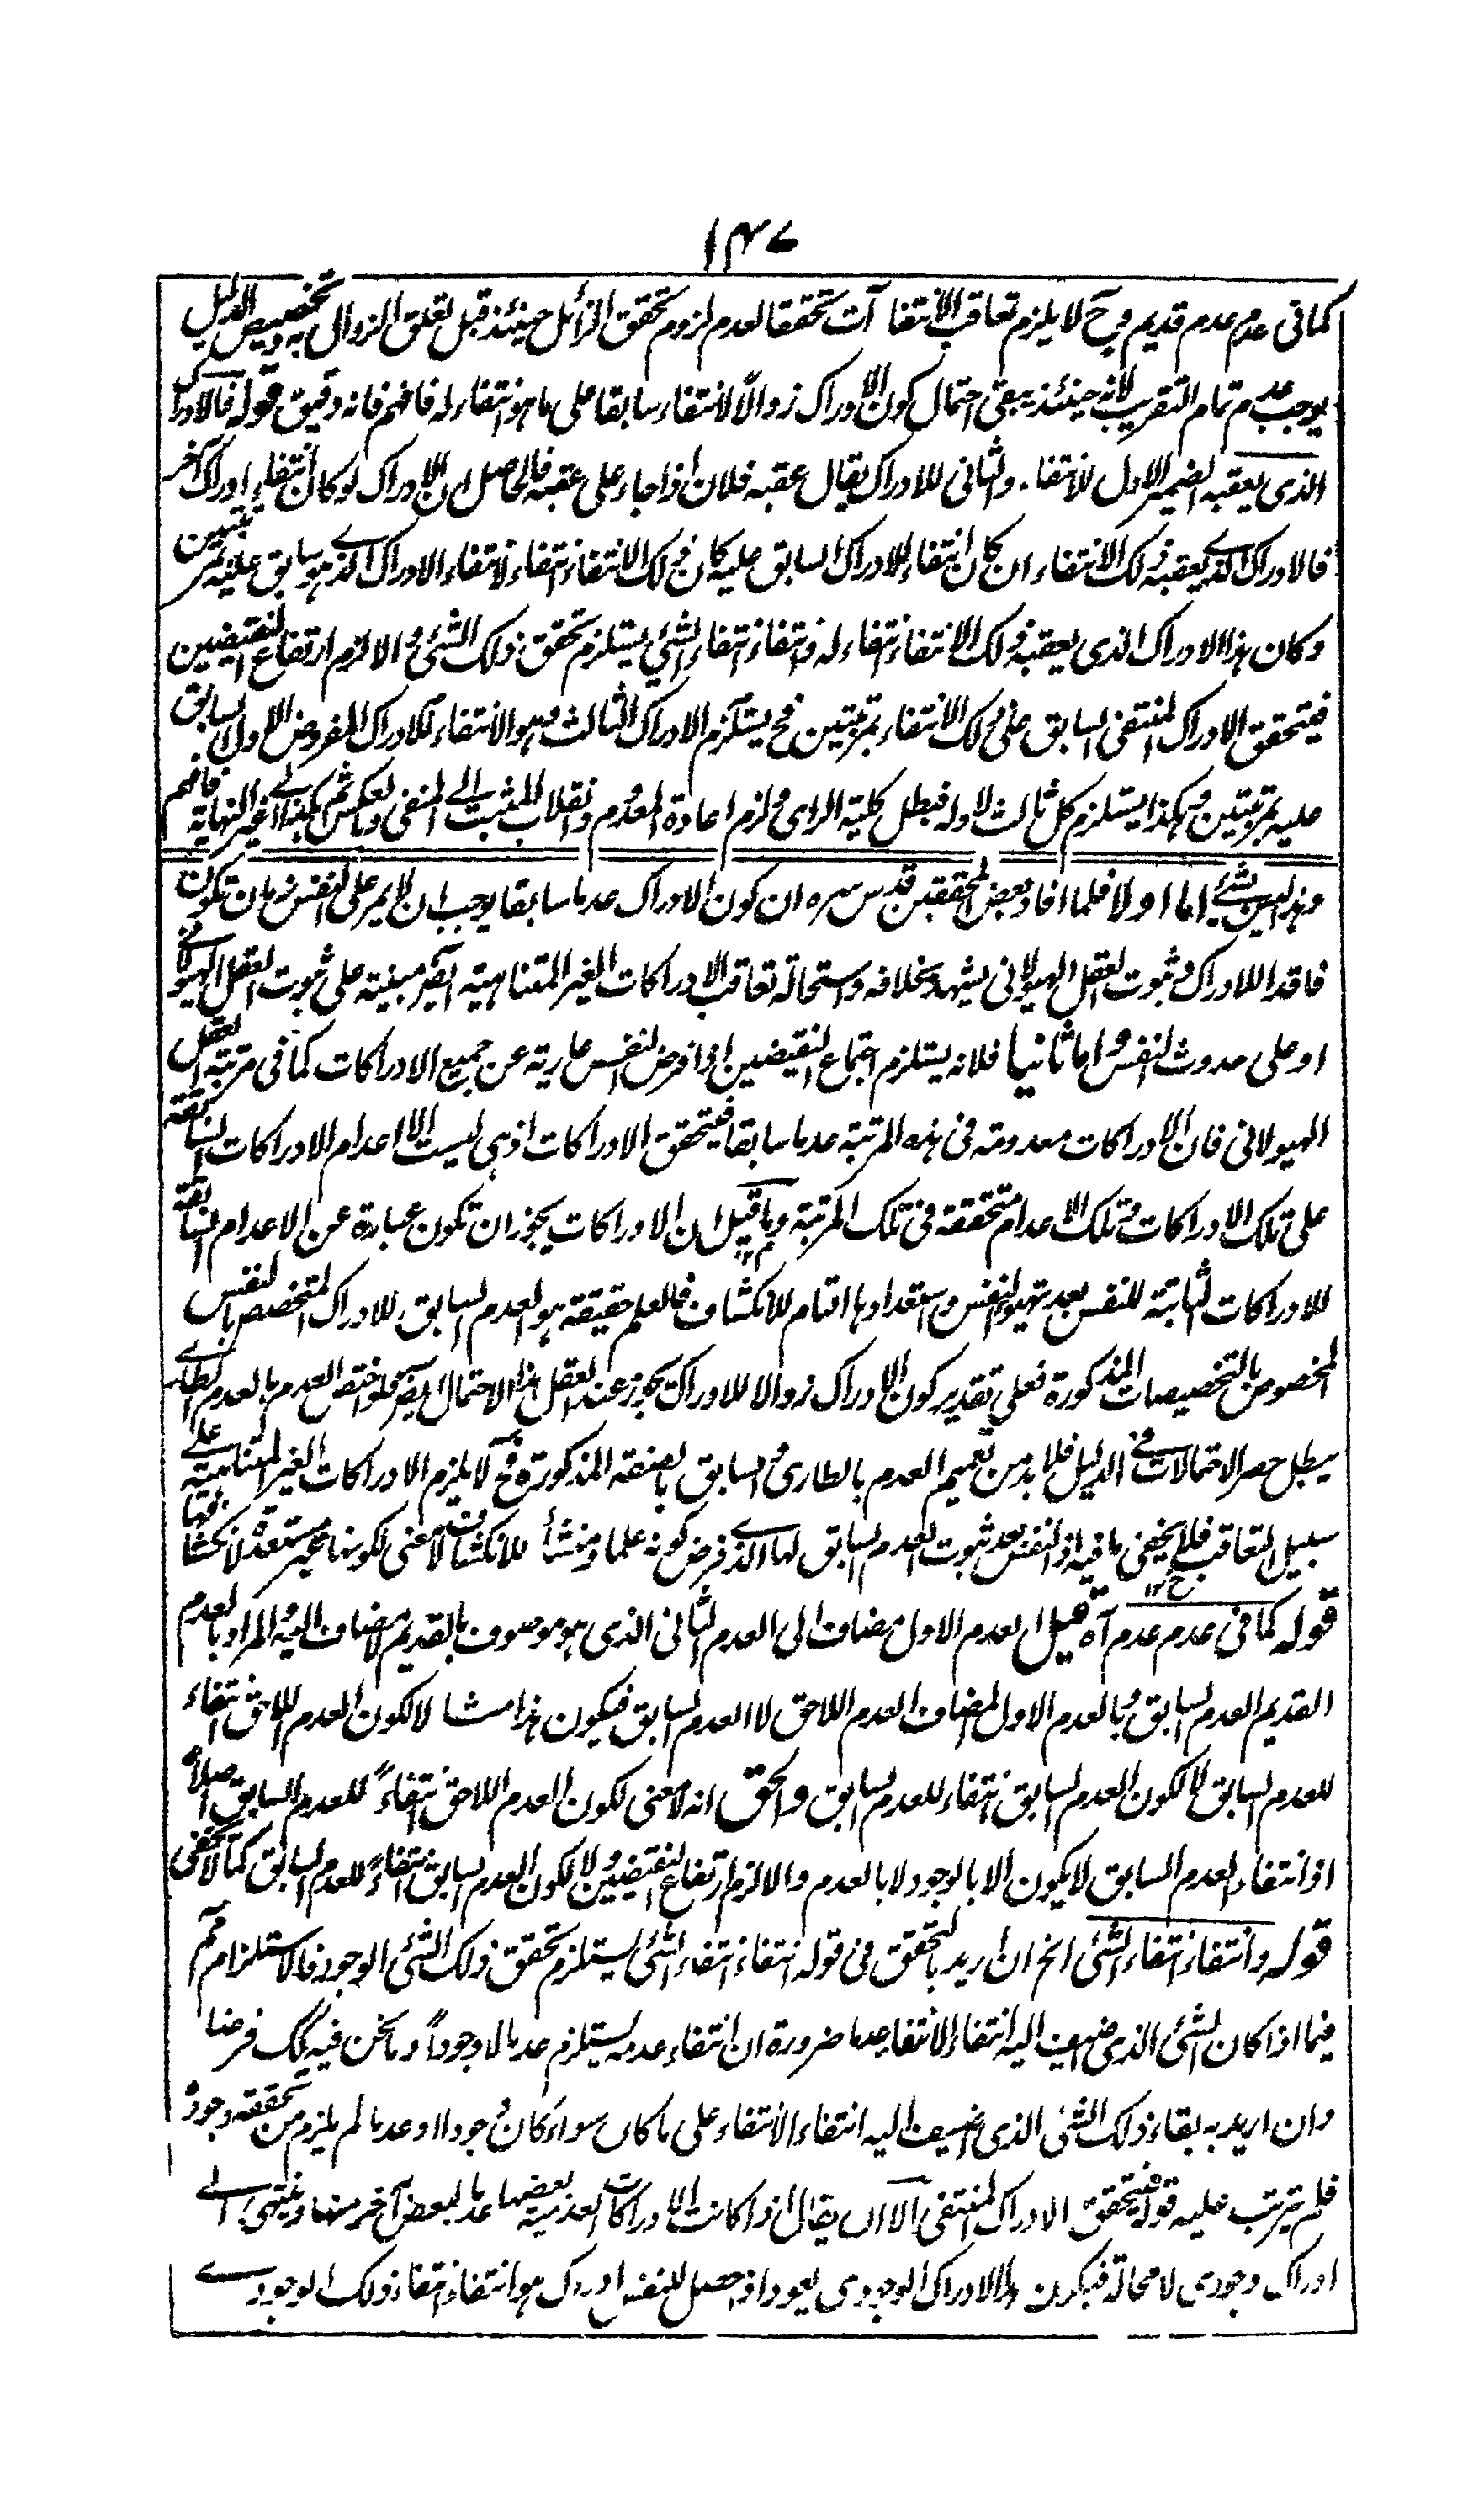 ١٤٧
كما فى عدم عدم قديم وح لا يلزم تعاقب الانتفا آت تحققا لعدم لزوم تحقق الزائل حينئذ قبل تعلق الزوال به وتخصيص الدليل
يوجب عدم تمام التقريب لانه حينئذ يبقى احتمال كون الادراك زوالا لانتفاء سابقا على ما هو انتفاء له فافهم فانه دقيق قوله فالادراك
الذى يعقبه الضمير الاول للانتفاء والثانى للادراك يقال عقبه فلان اذا جاء على عقبه فالحاصل ان الادراك لو كان انتفاء ادراك آخر
فالادراك الذے يعقبه ذلك الانتفاء ان كان انتفاء للادراك السابق عليه كان ذلك الانتفاء انتفاء لانتفاء الادراك الذے هو سابق عليه بمرتبتين
وكان هذا الادراك الذى يعقبه ذلك الانتفاء انتفاء له وانتفاء انتفاء الشئ يستلزم تحقق ذلك الشئ والا لزم ارتفاع النقيضين
فيتحقق الادراك المنتفى السابق على ذلك الانتفاء بمرتبتين فح يستلزم الادراك الثالث وهو الانتفاء للادراك المفروض الاول السابق
عليه بمرتبتين وهكذا يستلزم كل ثالث لاوله فبطل كلية الراى ولزم اعادة المعدوم وانقلاب المثبت الے المنفى وبالعكس ثم هكذا الے غير النهاية فافهم
وهذا ليس بشئ اما اولا فلما افاد بعض المحققين قدس سره ان كون الادراك عدما سابقا يوجب ان لا يمر على النفس زمان تكون
فاقدا للادراك وثبوت العقل الهيولانى يشهد بخلافه واستحالة تعاقب الادراكات الغير المتناهية ايضا مبنية على ثبوت العقل الهيولانے
او على حدوث النفس واما ثانيا فلانه يستلزم اجتماع النقيضين اذا فرض النفس عارية عن جميع الادراكات كما فى مرتبة العقل
الهيولانى فان الادراكات معدومة فى هذه المرتبة عدما سابقا فيتحقق الادراكات اذ هى ليست الا اعدام الادراكات السابقة
على تلك الادراكات وتلك الاعدام متحققة فى تلك المرتبة وما قيل ان الادراكات يجوز ان تكون عبارة عن الاعدام السابقة
للادراكات الثابتة للنفس بعد تهيؤ النفس واستعدادها التام للانكشاف فالعلم حقيقة هو العدم السابق للادراك المتخصص بالنفس
المخصوص بالتخصيصات المذكورة فعلى تقدير كون الادراك زوالا للادراك يجوز عند العقل هذا الاحتمال ايضا فلو اختص العدم بالعدم الطارے
يبطل حصر الاحتمالات فے الدليل فلا بد من تعميم العدم بالطارى والسابق بالصفة المذكورة وح لا يلزم الادراكات الغير المتناهية علے
سبيل التعاقب فلا يخفى ما فيه اذ النفس بعد ثبوت العدم السابق لها الذے فرض كونه علما ومنشأ للانكشاف لا معنى لكونها غير مستعدة لانكشافها
قوله كما فى عدم عدم آه قيل العدم الاول مضاف الى العدم الثانى الذى هو موصوف بالقديم لا مضاف اليه والمراد بالعدم
القديم العدم السابق وبالعدم الاول المضاف العدم اللاحق لا العدم السابق فيكون هذا مثالا لكون العدم اللاحق انتفاء
للعدم السابق لا لكون العدم السابق انتفاء للعدم السابق والحق انه لا معنى لكون العدم اللاحق انتفاءً للعدم السابق اصلا
اذ انتفاء العدم السابق لا يكون الا بالوجود لا بالعدم والا لزم ارتفاع النقيضين ولا لكون العدم السابق انتفاءً للعدم السابق كما لا يخفى
قوله وانتفاء انتفاء الشئ الخ ان اريد بالتحقق فى قوله انتفاء انتفاء الشئ يستلزم تحقق ذلك الشئ الوجود فالاستلزام مم
فيما اذا كان الشئ الذى اضيف اليه انتفاء الانتفاء عدما ضرورة ان انتفاء عدمه يستلزم عدما لا وجوداً وما نحن فيه كك فرضا
وان اريد به بقاء ذلك الشئ الذى اضيف اليه انتفاء الانتفاء على ما كان سواء كان وجودا او عدما لم يلزم من تحققه وجوده
فلم يترتب عليه قوله فيتحقق الادراك المنتفى الا ان يقال اذا كانت الادراكات العدمية بعضها عدما لبعض آخر منها وينتهى الے
ادراك وجودى لا محالة فيكون هذا الادراك الوجودى يعود اذ حصل للنفس ادراك هو انتفاء انتفاء ذلك الوجودے